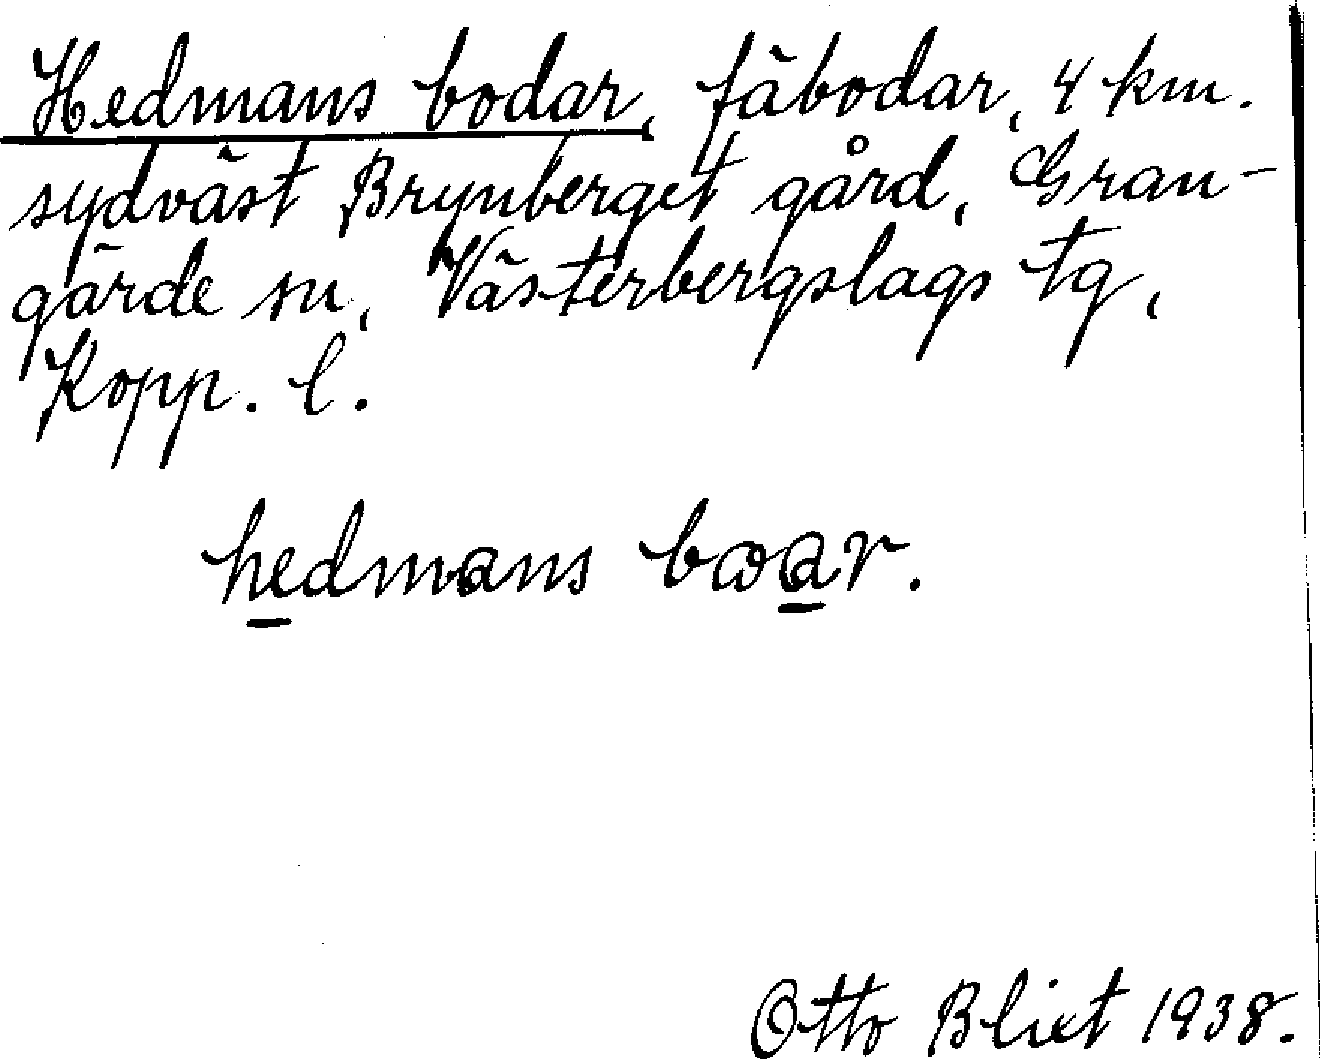 Hedmans bodar, fäbodar, 4 km.
sydväst Brynberget gård, Gran-
gärde sn, Västerbergslags tg,
Kopp. l.
hedmans bωar.
Otto Blixt 1938.